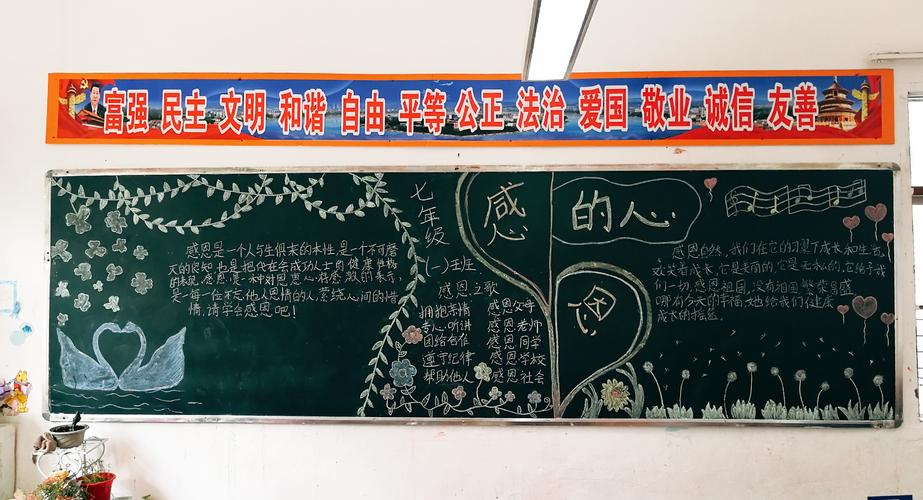 富强 民主 文明 和谐 自由 平等 公正 法治 爱国 敬业 诚信 友善
感恩是一个人与生俱来的本性,是一个不可磨
灭的良知,也是现代社会成功人士的健康性格
的表现,感恩是一种对恩惠心存感激的表示
是每一位不忘他人恩情的人,萦绕心间的情
情,请学会感恩吧!
七年级
(一)班
感恩之歌
拥抱亲情 感恩父母
专心听讲 感恩老师
团结合作 感恩同学
遵守纪律 感恩学校
帮助他人 感恩社会
感
恩
的心
感恩自然,我们在它的习翼下成长和生活
欢笑着成长,它是美丽的,它是无私的,它给予我
们一切,感恩祖国,没有祖国繁荣昌盛
哪有今天的幸福,她给我们健康
成长的摇篮.